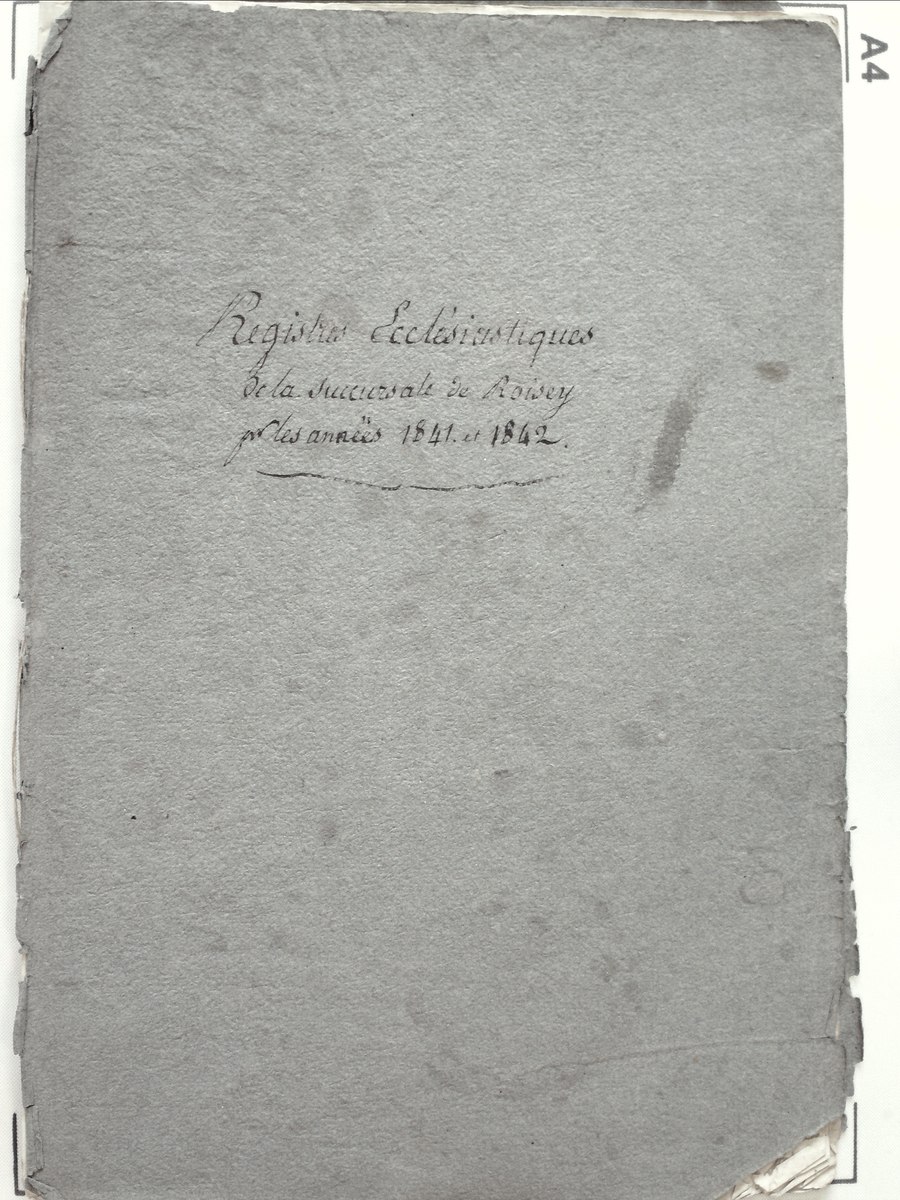 Registres Ecclésiastiques
de la Succursale de Roisey
pr les années 1841. et 1842.
A4